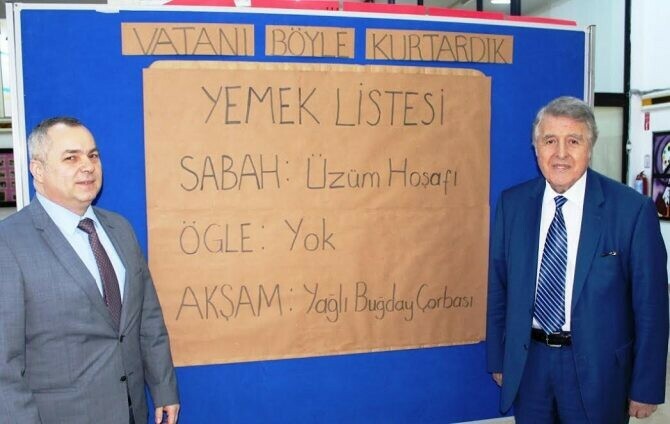 VATANI BÖYLE KURTARDIK
YEMEK LİSTESİ
SABAH: Üzüm Hoşafı
ÖGLE: Yok
AKŞAM: Yağlı Buğday Çorbası